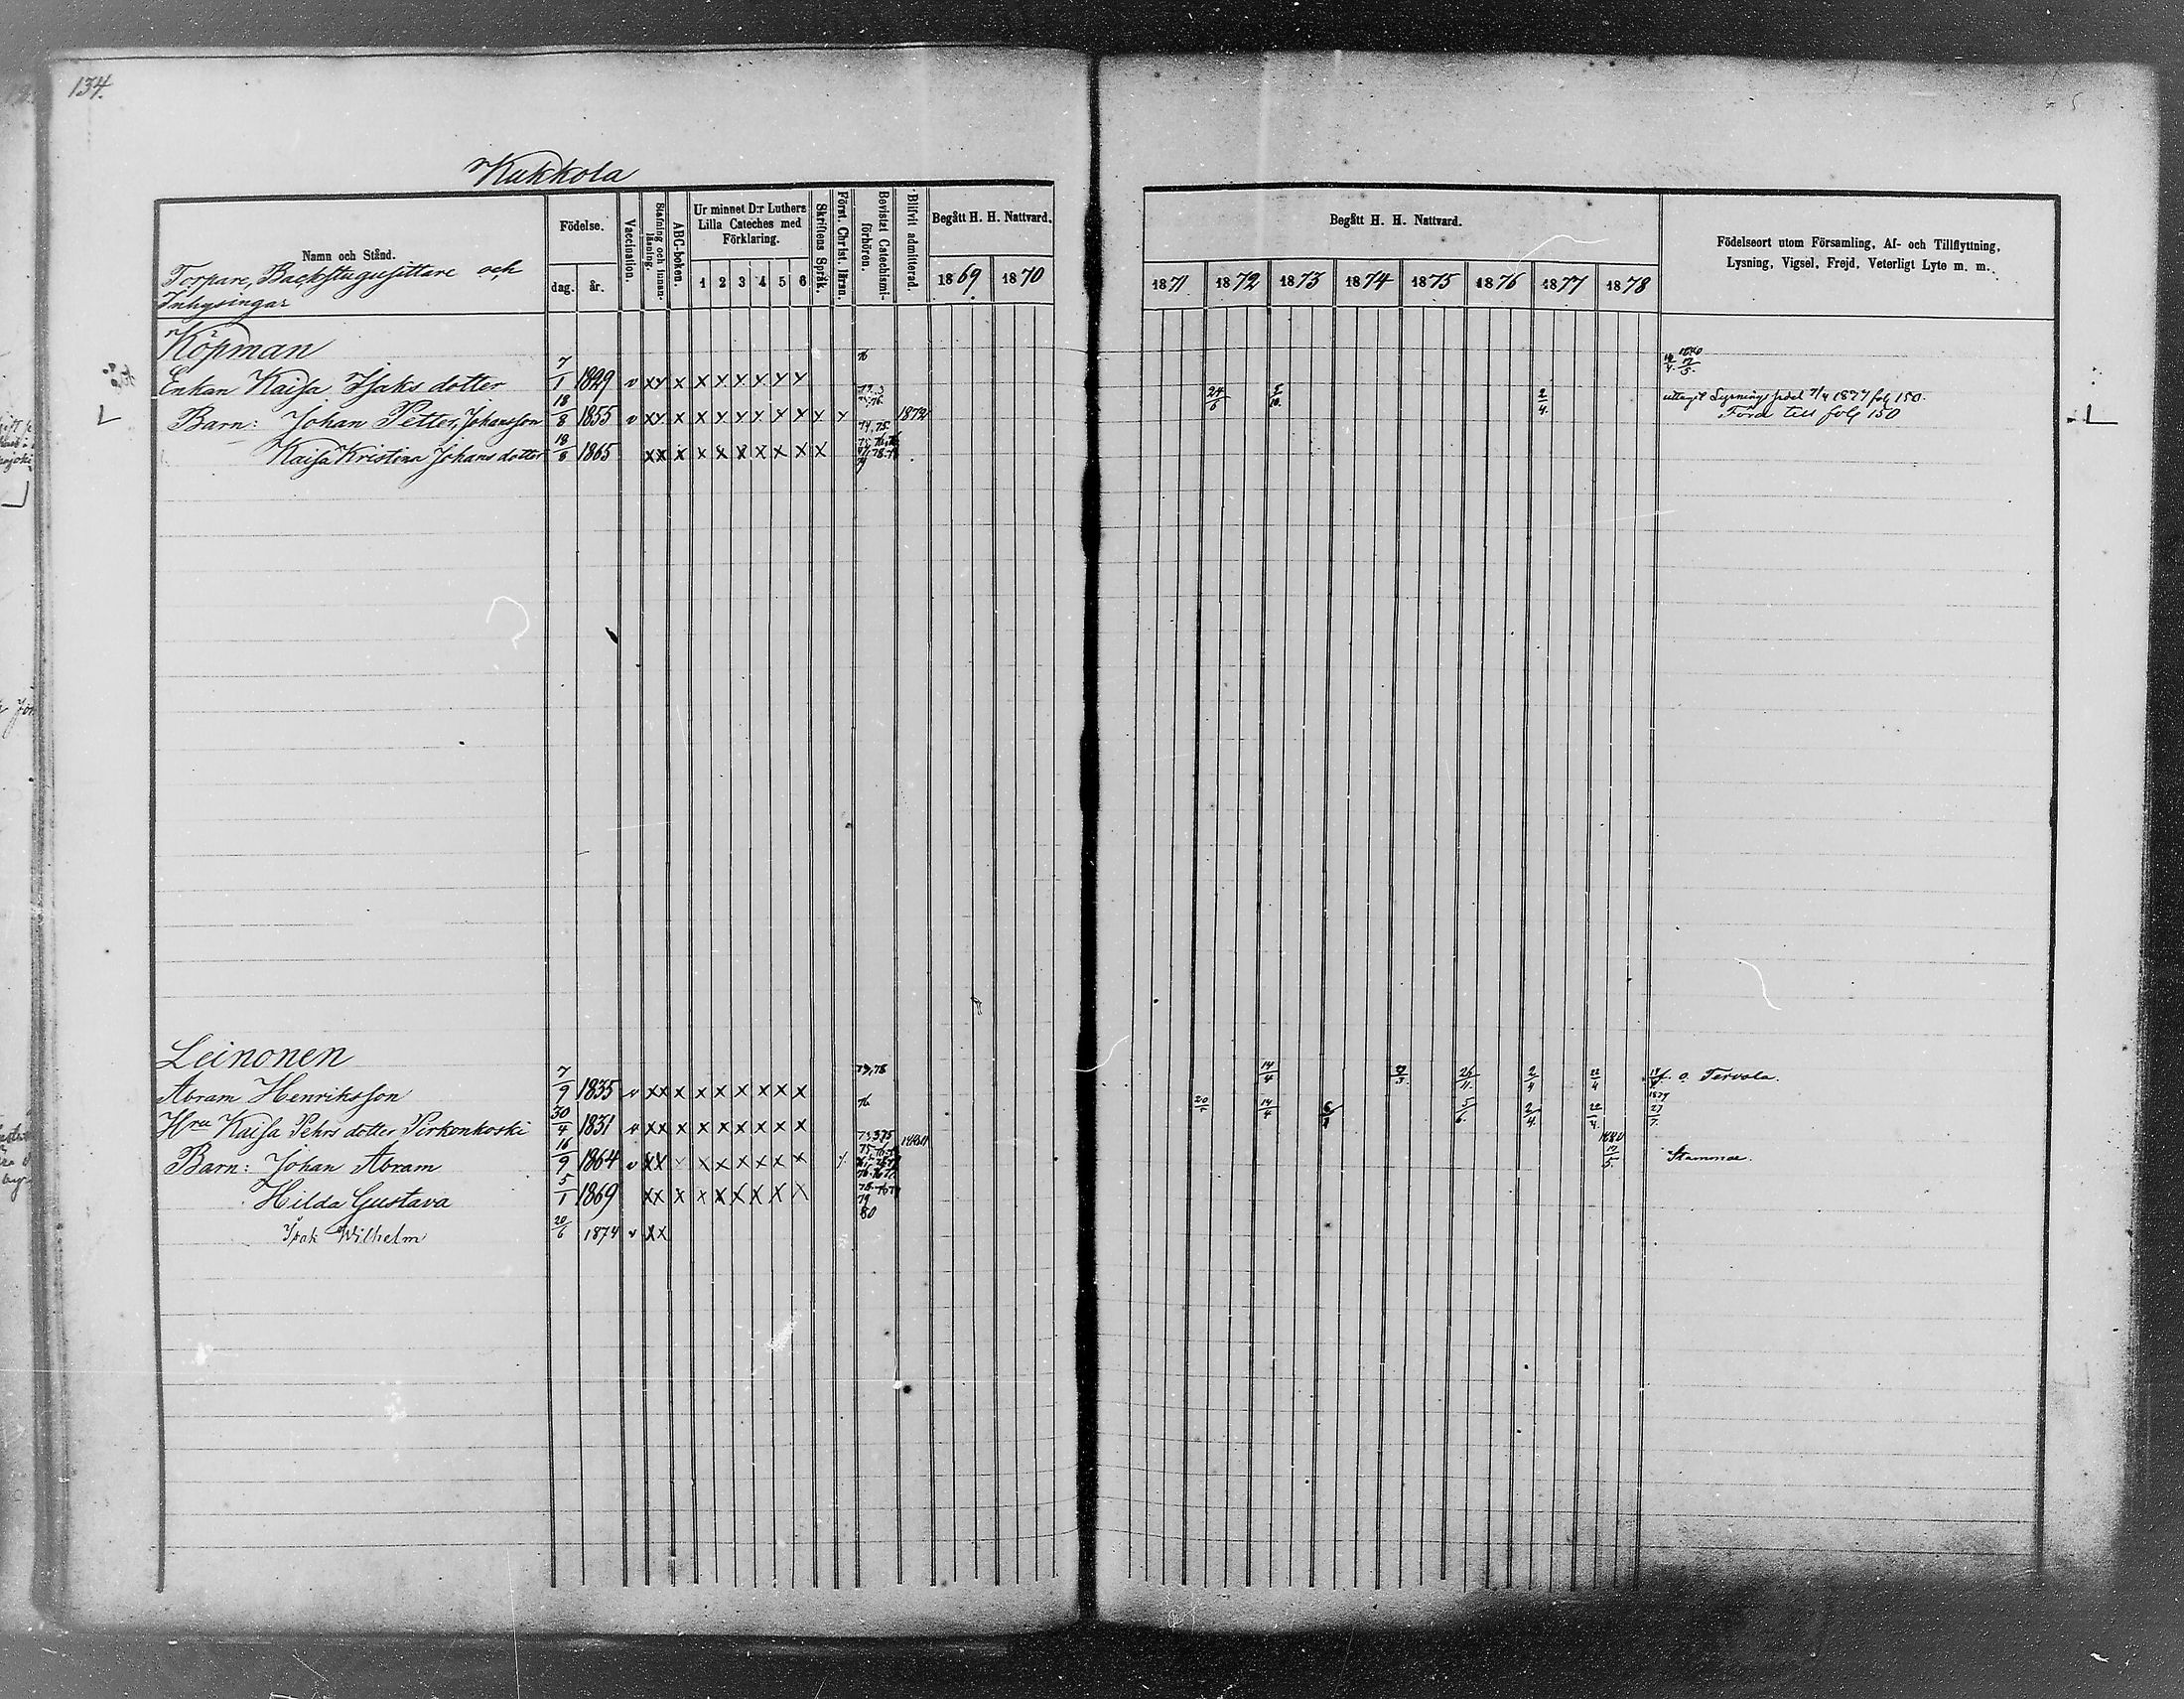 134.
Kukkola
Namn och Stånd.
Torpare, Backstugusittare och
Inhysingar
Födelse.
dag. år.
Vaccination.
Stafning och innan-
läsning.
ABC-boken.
Ur minnet D:r Luthers
Lilla Cateches med
Förklaring.
1 2 3 4 5 6
Skriftens Språk.
Först. Christ. läran.
Bevistat Catechismi-
förhören.
Blifvit admitterad.
Begått H. H. Nattvard.
1869 1870
Begått H. H. Nattvard.
1871 1872 1873 1874 1875 1876 1877 1878
Födelseort utom Församling, Af- och Tillflyttning,
Lysning, Vigsel, Frejd, Veterligt Lyte m. m.
Köpman
Enkan Kaisa Isaks dotter 7/1 1829 v xx x x x x x x x 76
Barn: Johan Petter, Johansson 18/8 1855 v xx x x x x x x x x x 1872 24/6 5/10. 2/4. Lysnings sedel 7/4 1877 fol 150.
Förd till folg 150
Kaisa Kristina Johans dotter 18/8 1865 xx x x x x x x x x
Leinonen
Abram Henriksson 7/9 1835 v xx x x x x x x x 73,78 14/4 26/11. 2/4 22/4 f. o. Tervola.
Hru Kaisa Pehrs dotter Pirkonkoski 30/4 1831 v xx x x x x x x x 76 20/5 14/4 5/6. 2/4. 22/4. 1879 27/7.
Barn: Johan Abram 16/9 1864 v xx x x x x x x 1880 1880 17/5. Stammar.
Hilda Gustava 5/1 1869 xx x x x x x x x 79
80
Isak Wilhelm 20/6 1874 v xx